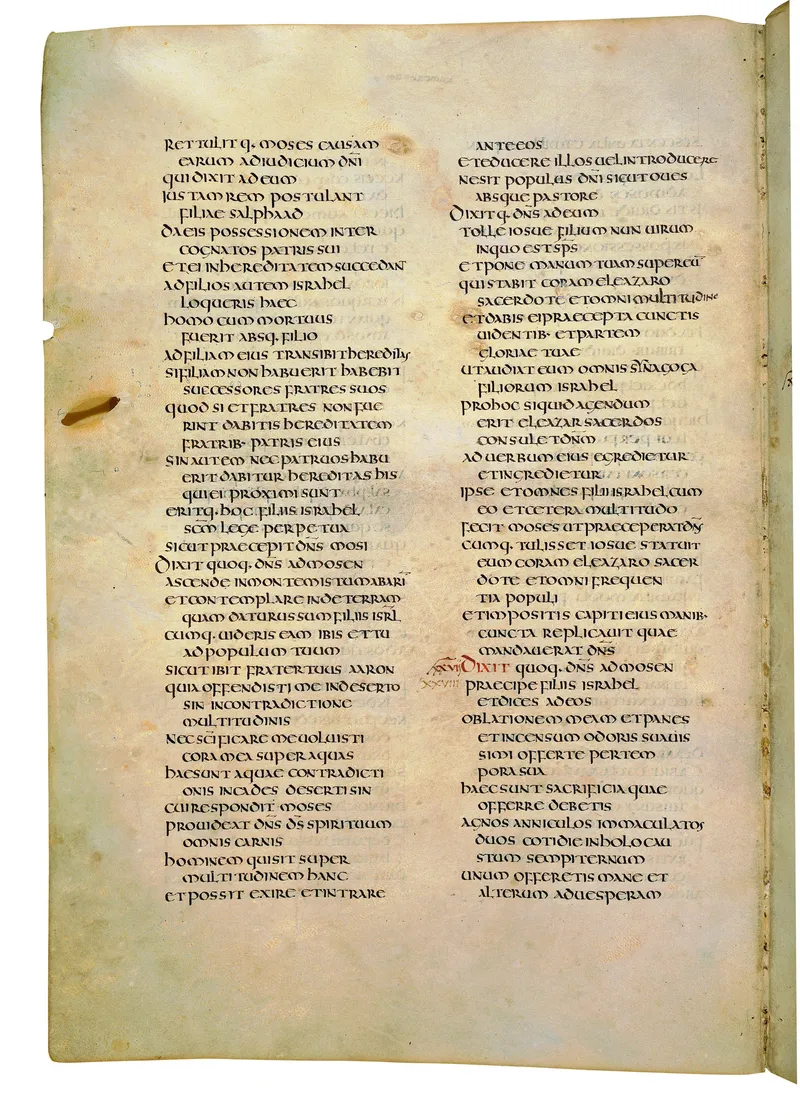 RETTULIT Q· MOSES CAUSAM
EARUM AD IUDICIUM DN̄I
QUI DIXIT AD EUM
IUSTAM REM POSTULANT
FILIAE SALPHAAD
DA EIS POSSESSIONEM INTER
COGNATOS PATRIS SUI
ET EI IN HEREDITATEM SUCCEDANT
AD FILIOS AUTEM ISRAHEL
LOQUERIS HAEC
HOMO CUM MORTUUS
FUERIT ABSQ· FILIO
AD FILIAM EIUS TRANSIBIT HEREDITAS
SI FILIAM NON HABUERIT HABEBIT
SUCCESSORES FRATRES SUOS
QUOD SI ET FRATRES NON FUE
RINT DABITIS HEREDITATEM
FRATRIB· PATRIS EIUS
SIN AUTEM NEC PATRUOS HABU
ERIT DABITUR HEREDITAS HIS
QUI EI PROXIMI SUNT
ERITQ· HOC FILIIS ISRAHEL
SC̄M LEGE PERPETUA
SICUT PRAECEPIT DN̄S MOSI
DIXIT QUOQ· DN̄S AD MOSEN
ASCENDE IN MONTEM ISTUM ABARĪ
ET CONTEMPLARE INDE TERRAM
QUAM DATURUS SUM FILIIS ISRL̄
CUMQ· UIDERIS EAM IBIS ET TU
AD POPULUM TUUM
SICUT IBIT FRATER TUUS AARON
QUIA OFFENDISTI ME IN DESERTO
SIN IN CONTRADICTIONE
MULTITUDINIS
NEC SC̄IFICARE ME UOLUISTI
CORAM EA SUPER AQUAS
HAE SUNT AQUAE CONTRADICTI
ONIS IN CADES DESERTI SIN
CUI RESPONDIT MOSES
PROUIDEAT DN̄S D̄S SPIRITUUM
OMNIS CARNIS
HOMINEM QUI SIT SUPER
MULTITUDINEM HANC
ET POSSIT EXIRE ET INTRARE
ANTE EOS
ET EDUCERE ILLOS UEL INTRODUCERE
NE SIT POPULUS DN̄I SICUT OUES
ABSQUE PASTORE
DIXIT Q· DN̄S AD EUM
TOLLE IOSUE FILIUM NUN UIRUM
IN QUO EST SP̄S
ET PONE MANUM TUAM SUPER EŪ
QUI STABIT CORAM ELEAZARO
SACERDOTE ET OMNI MULTITUDINE
ET DABIS EI PRAECEPTA CUNCTIS
UIDENTIB· ET PARTEM
GLORIAE TUAE
UT AUDIAT EUM OMNIS SYNAGOGA
FILIORUM ISRAHEL
PRO HOC SI QUID AGENDUM
ERIT ELEAZAR SACERDOS
CONSULET DN̄M
AD UERBUM EIUS EGREDIETUR
ET INGREDIETUR
IPSE ET OMNES FILII ISRAHEL CUM
EO ET CETERA MULTITUDO
FECIT MOSES UT PRAECEPERAT DN̄S
CUMQ· TULISSET IOSUE STATUIT
EUM CORAM ELEAZARO SACER
DOTE ET OMNI FREQUEN
TIA POPULI
ET IMPOSITIS CAPITI EIUS MANIB·
CUNCTA REPLICAUIT QUAE
MANDAUERAT DN̄S
XXVII DIXIT QUOQ· DN̄S AD MOSEN
XXVIII PRAECIPE FILIIS ISRAHEL
ET DICES AD EOS
OBLATIONEM MEAM ET PANES
ET INCENSUM ODORIS SUAUIS
SIMI OFFERTE PER TEM
PORA SUA
HAEC SUNT SACRIFICIA QUAE
OFFERRE DEBETIS
AGNOS ANNICULOS IMMACULATOS
DUOS COTIDIE IN HOLOCAU
STUM SEMPITERNUM
UNUM OFFERETIS MANE ET
ALTERUM AD UESPERAM